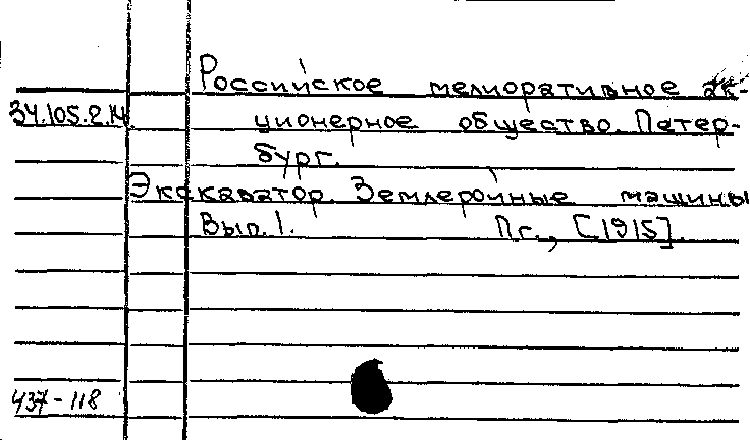 Российское мелиоративное ак-
34.105.2.14
ционерное общество. Петер-
бург.
Экскаватор. Землеройные машины
Вып. 1. Пг., [1915].
437-118